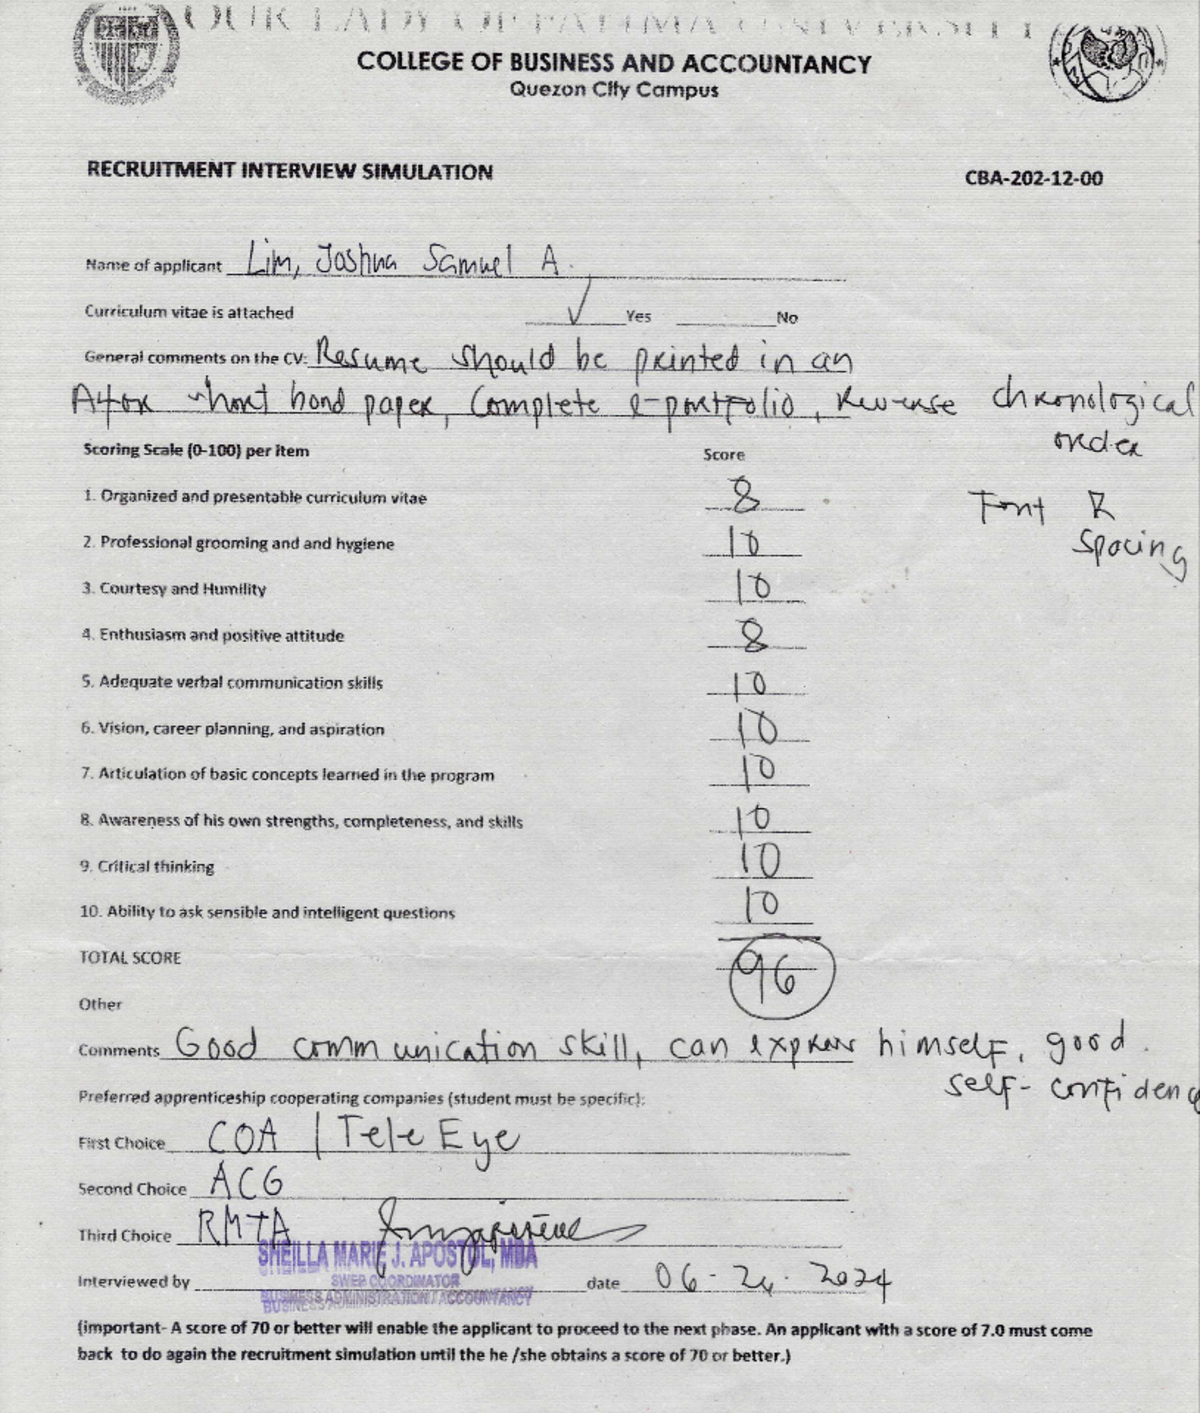 OUR LADY OF FATIMA UNIVERSITY
COLLEGE OF BUSINESS AND ACCOUNTANCY
Quezon City Campus
RECRUITMENT INTERVIEW SIMULATION
CBA-202-12-00
Name of applicant Lim, Joshua Samuel A.
Curriculum vitae is attached Yes No
General comments on the CV: Resume should be printed in an
A4 or short bond paper, Complete e-portfolio, Reverse chronological
order
Scoring Scale (0-100) per item Score
1. Organized and presentable curriculum vitae 8
Font &
spacing
2. Professional grooming and and hygiene 10
3. Courtesy and Humility 10
4. Enthusiasm and positive attitude 8
5. Adequate verbal communication skills 10
6. Vision, career planning, and aspiration 10
7. Articulation of basic concepts learned in the program 10
8. Awareness of his own strengths, completeness, and skills 10
9. Critical thinking 10
10. Ability to ask sensible and intelligent questions 10
TOTAL SCORE 96
Other
Comments Good communication skill, can express himself, good
self-confidence
Preferred apprenticeship cooperating companies (student must be specific):
First Choice COA | Tele Eye
Second Choice ACG
Third Choice RMTA
SHEILLA MARIE J. APOSTOL, MBA
SWEP COORDINATOR
BUSINESS ADMINISTRATION / ACCOUNTANCY
Interviewed by date 06-24-2024
(important- A score of 70 or better will enable the applicant to proceed to the next phase. An applicant with a score of 7.0 must come
back to do again the recruitment simulation until the he /she obtains a score of 70 or better.)